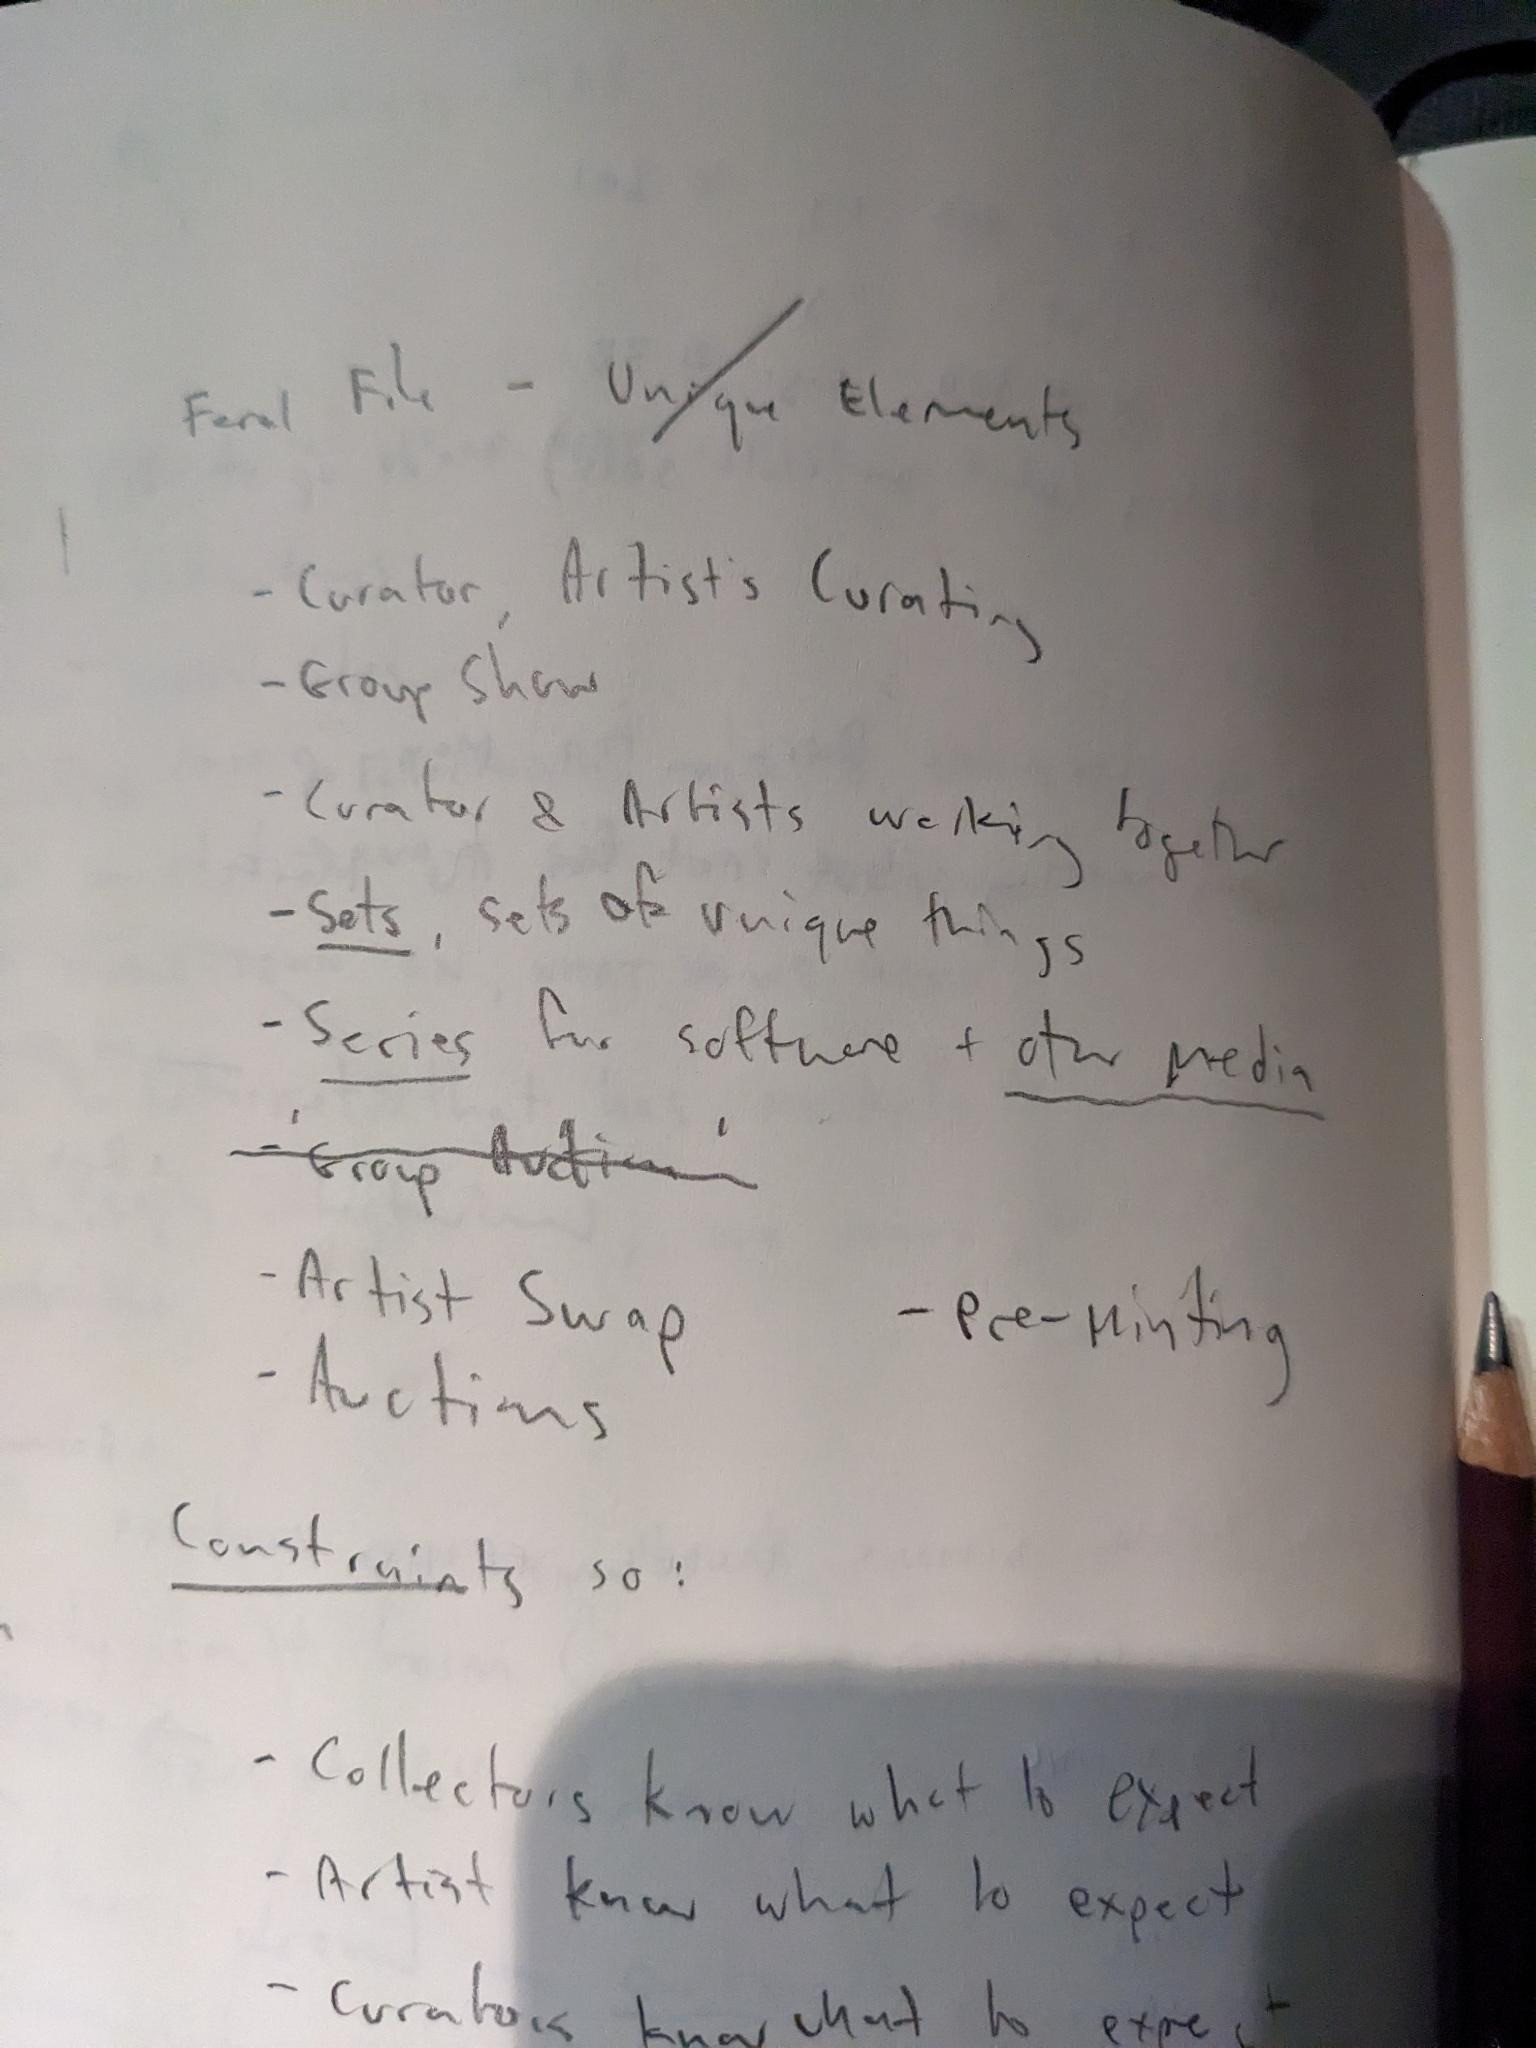 Feral File - Unique Elements
- Curator, Artist's Curating
- Group Show
- Curator & Artists working together
- Sets, sets of unique things
- Series for software + other media
- 'Group Auction'
- Artist Swap
- Pre-Minting
- Auctions
Constraints so:
- Collectors know what to expect
- Artist know what to expect
- Curators know what to expect